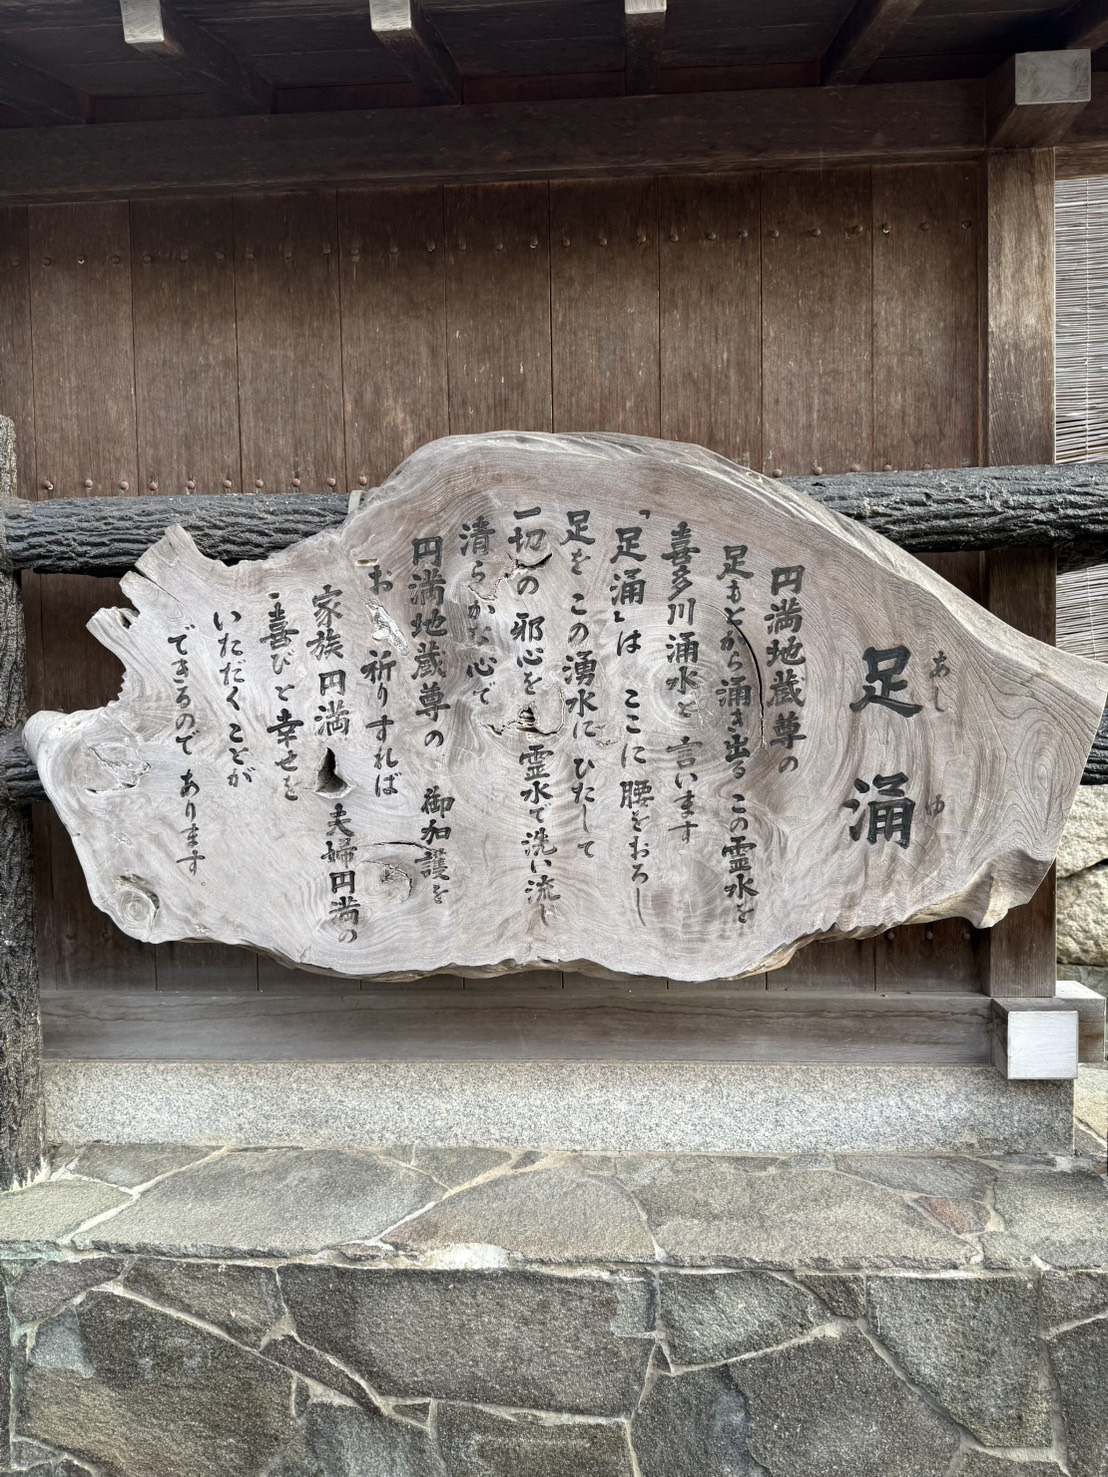 足涌
あしゆ
円満地蔵尊の
足もとから涌き出る この霊水を
喜多川涌水と 言います
「足涌」は ここに 腰をおろし
足を この湧水に ひたして
一切の 邪心を 霊水で洗い流し
清らかな心で
円満地蔵尊の 御加護を
お祈りすれば
家族円満 夫婦円満の
喜びと幸せを
いただくことが
できるので あります。